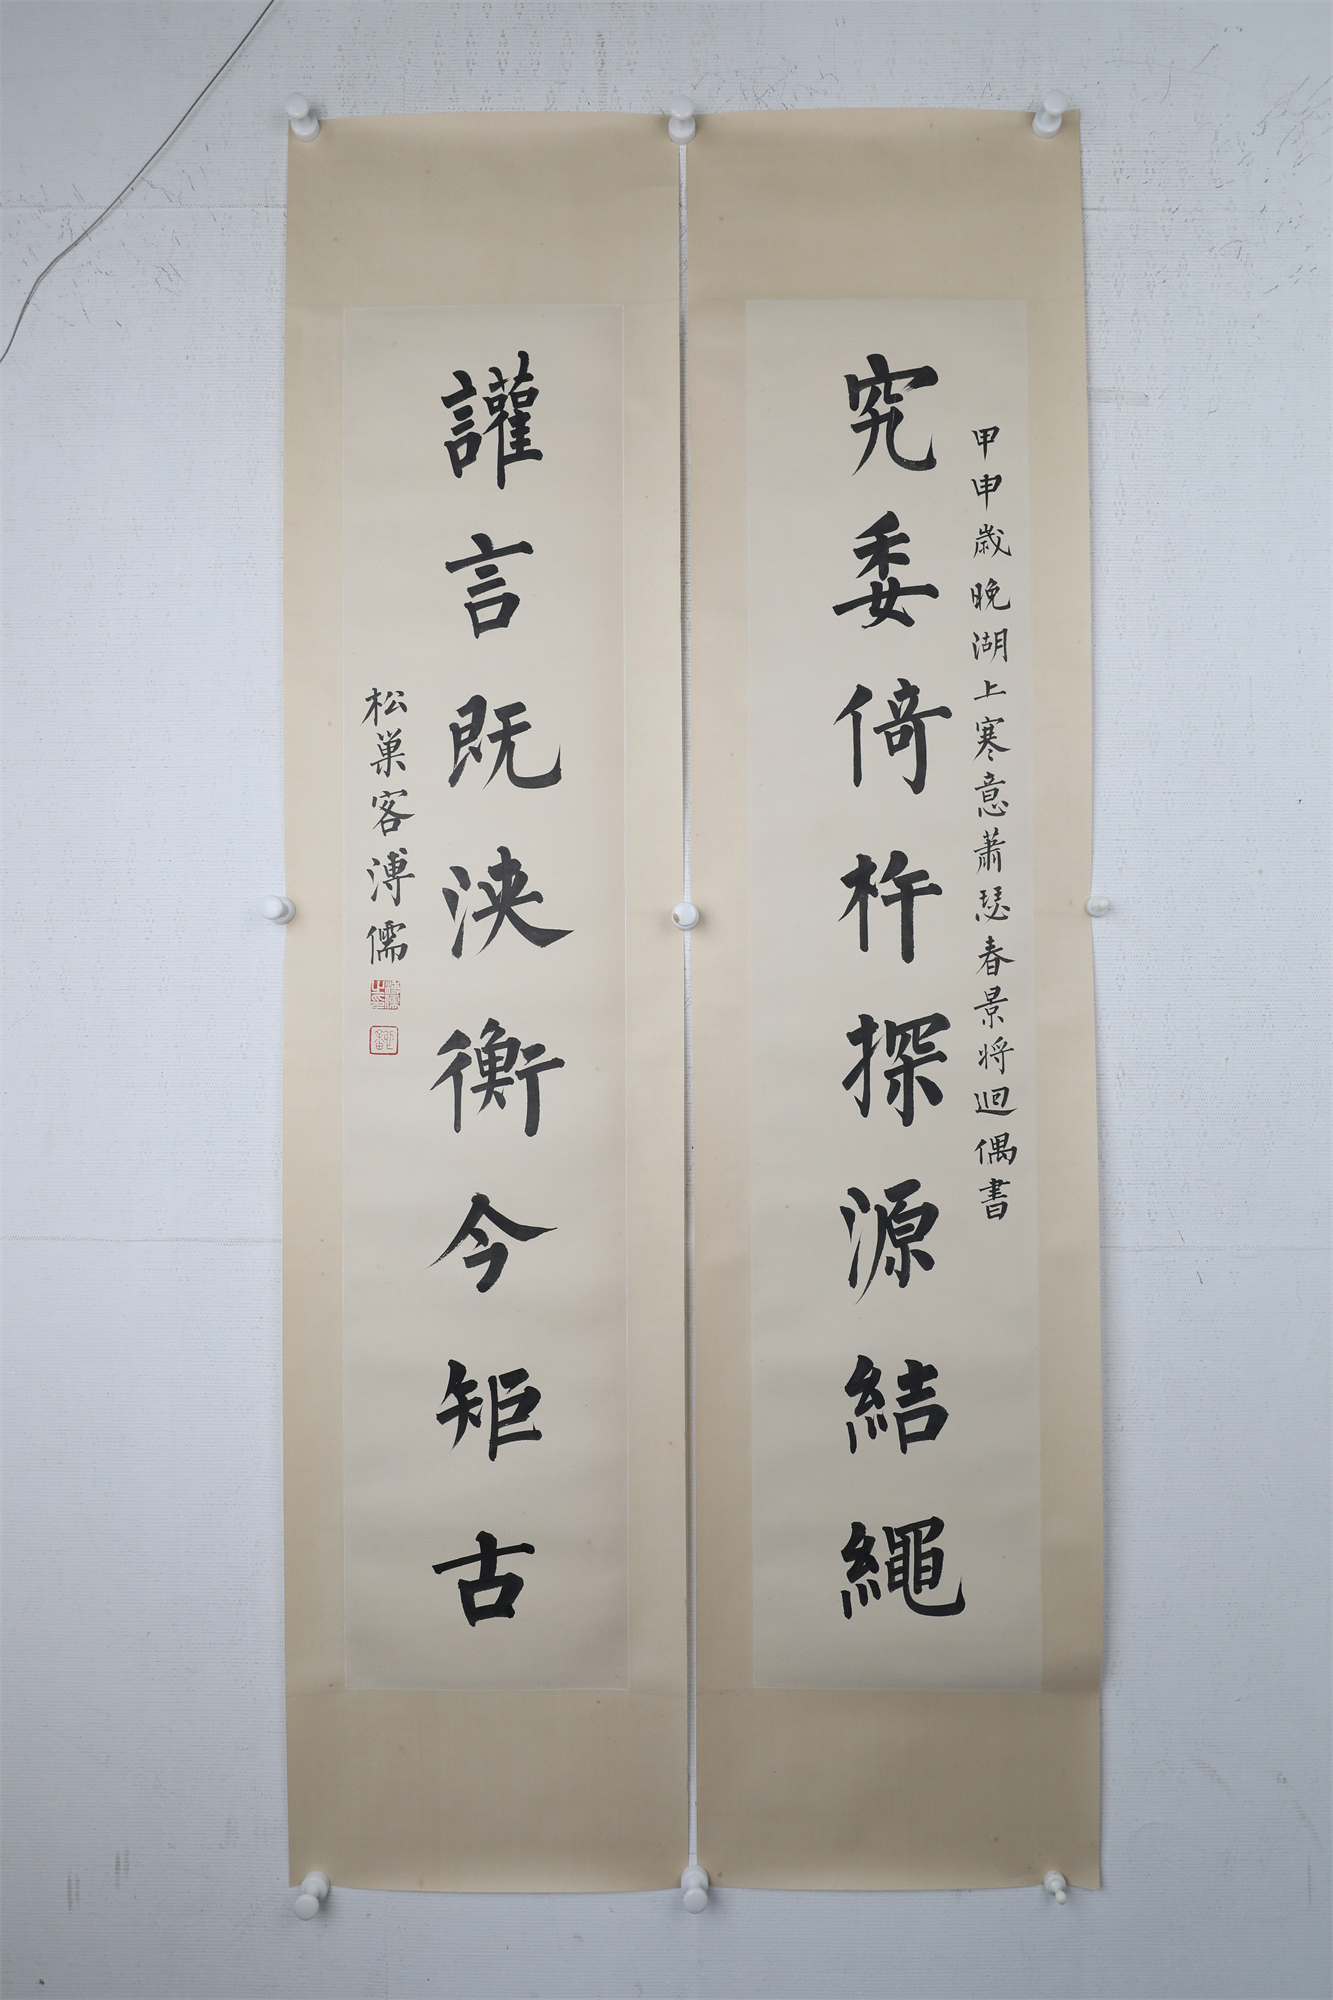 甲申歲晚湖上寒意蕭瑟春景將迴偶書
究委倚杵探源結繩
讙言既浹衡今矩古
松巢客溥儒